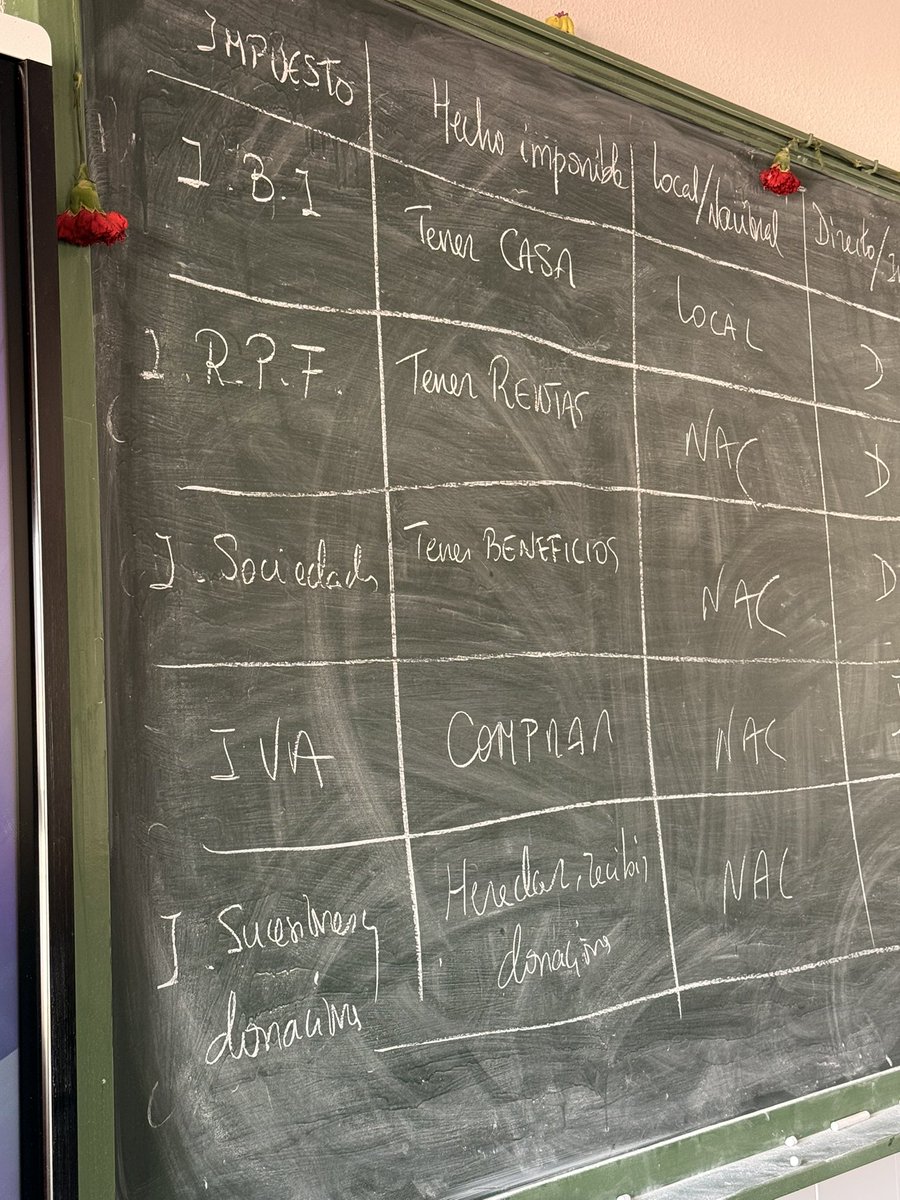 IMPUESTO Hecho imponible Local/Nacional Directo/
I.B.I Tener CASA LOCAL D
I.R.P.F. Tener RENTAS NAC D
I. Sociedads Tener BENEFICIOS NAC D
IVA COMPRAR NAC I
I. Sucesiones y Heredar, recibir NAC
donacións donacións